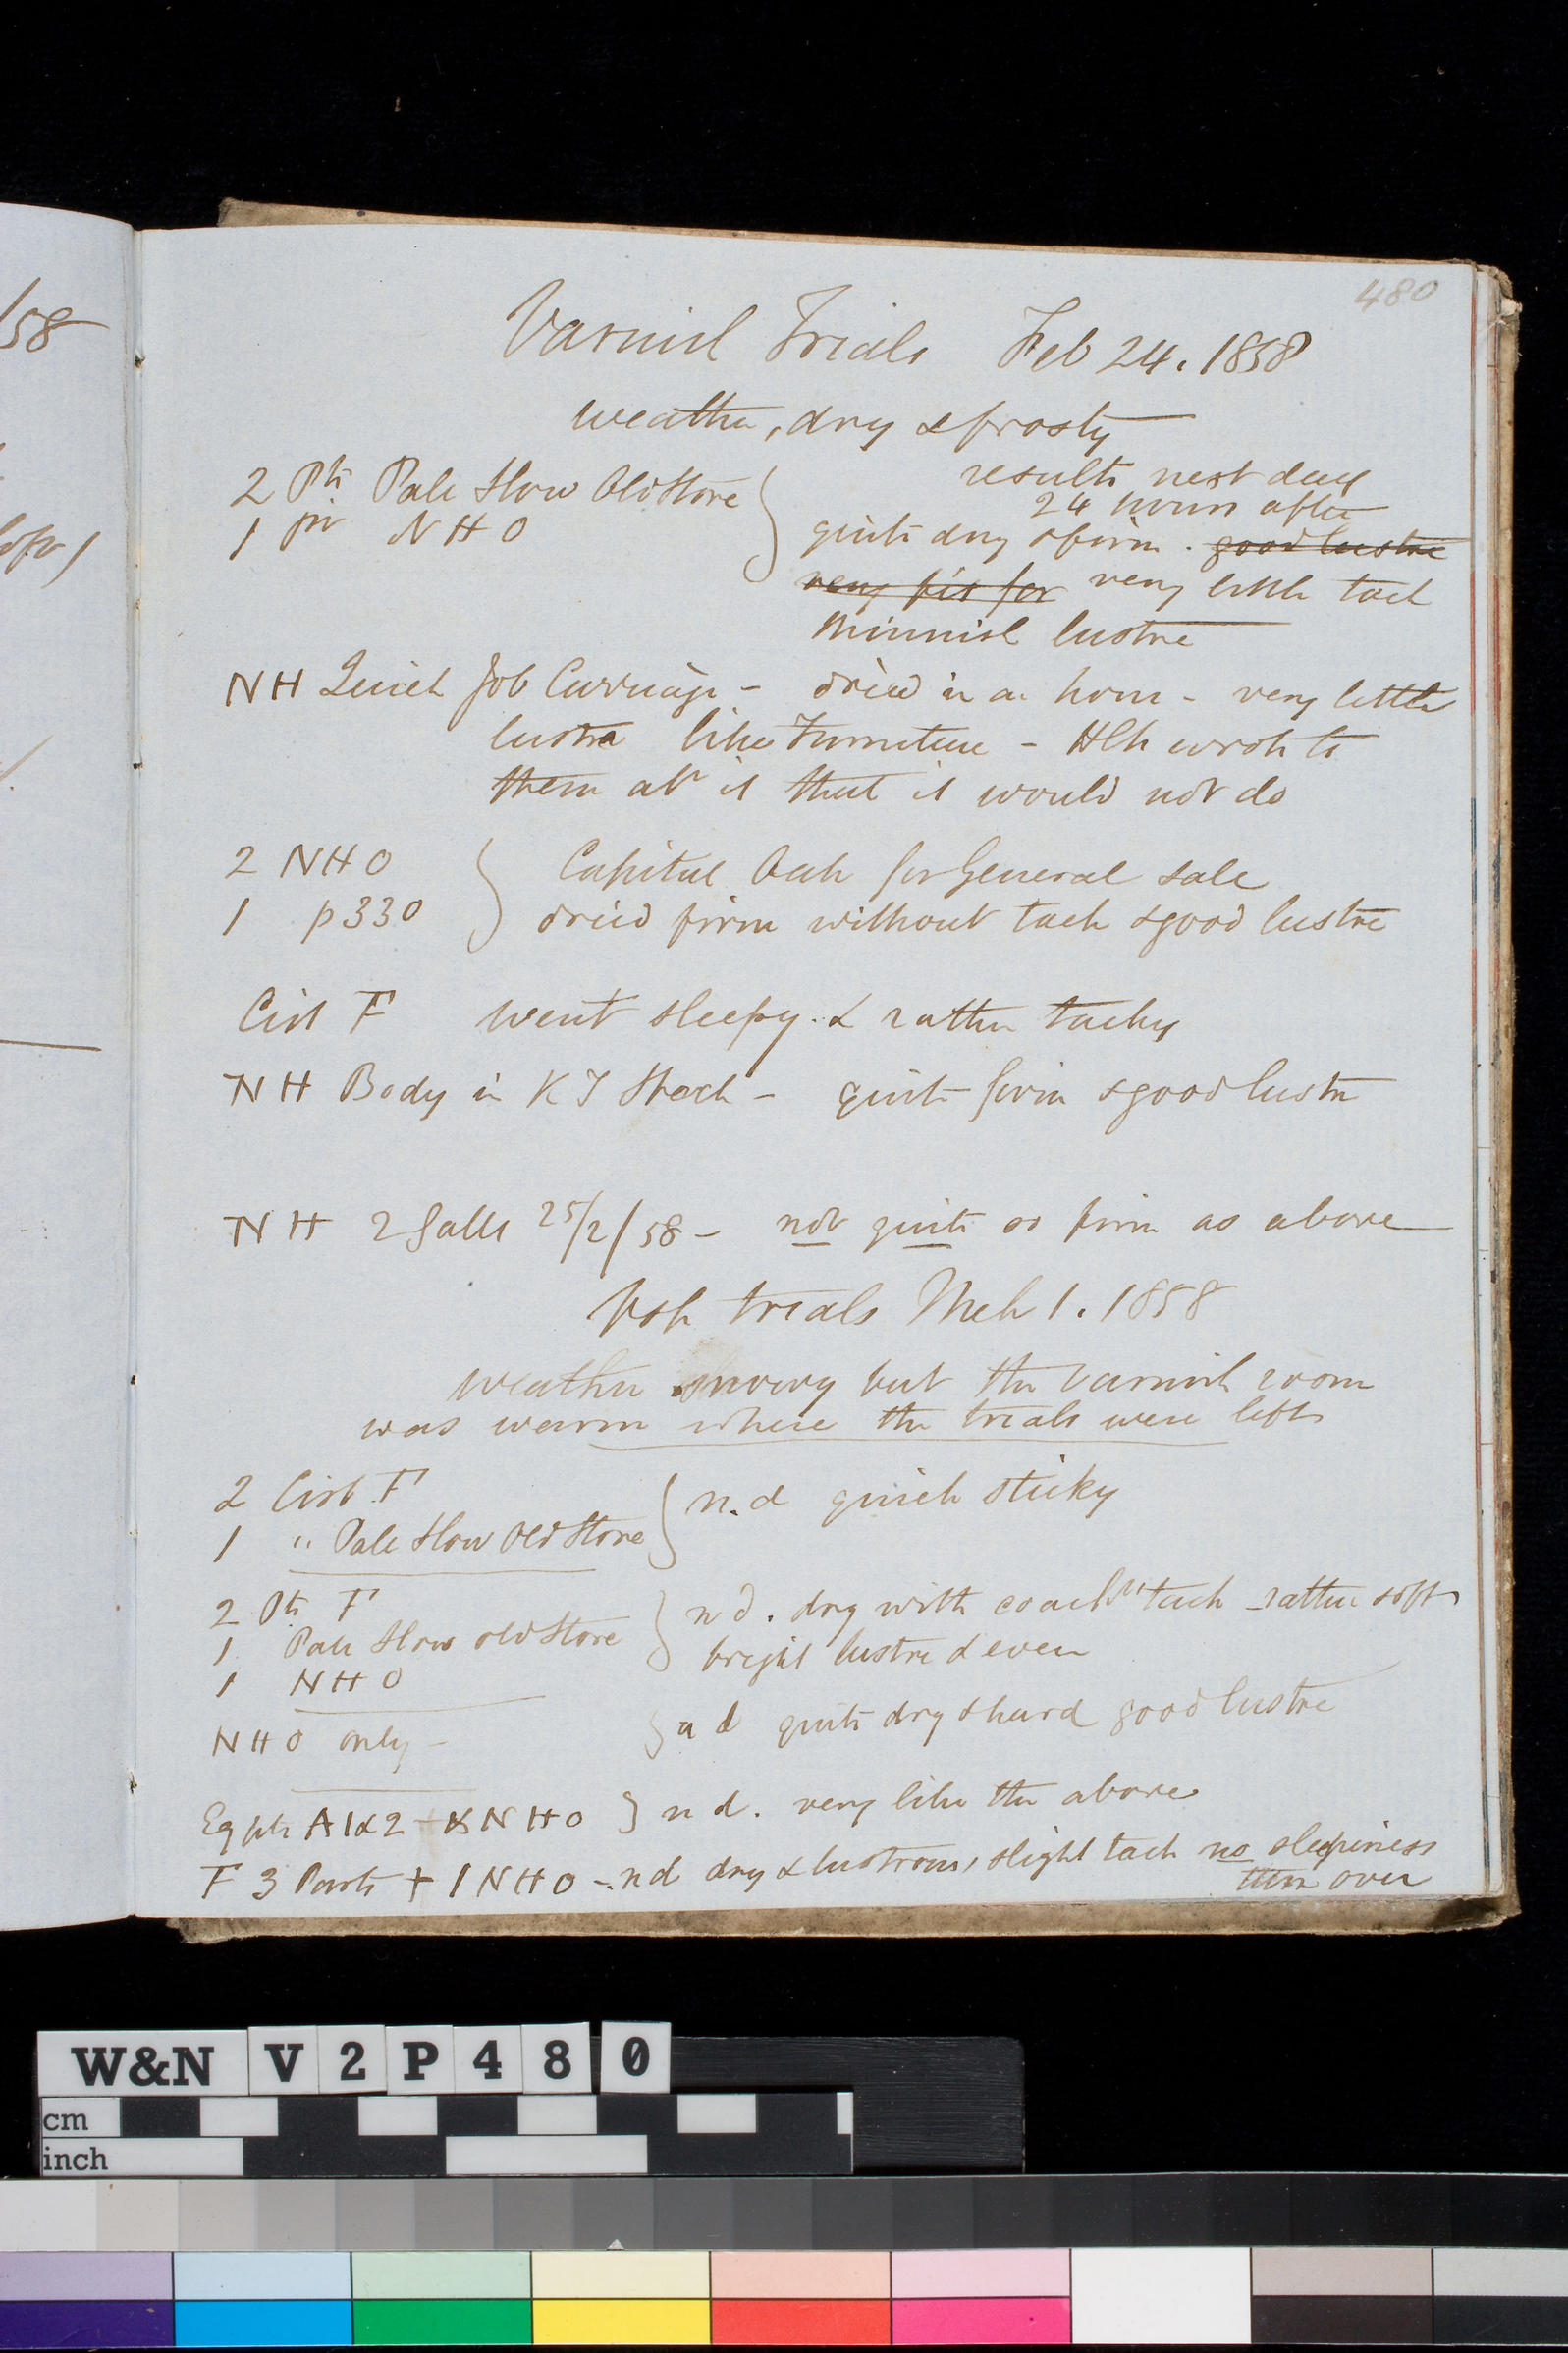 480
Varnish Trials Feb 24. 1858
weather, dry & frosty
2 Pts Pale Slow Old Store
1 pt NHO
results next day
24 hours after
quite dry & firm. good lustre
very fit for very little tack
thinnish lustre
NH Quick Job Carriage - dried in an hour - very little
lustre like Furniture - wrote to
them abt it that it would not do
2 NHO
1 p330
Capital Oak for General sale
dried firm without tack & good lustre
Cist F went sleepy. & rather tacky
NH Body in K T Stock - quite firm & good lustre
NH 2 Galls 25/2/58 - not quite so firm as above
trials Mch 1. 1858
weather snowy but the Varnish room
was warm where the trials were left
2 Cist F
1 " Pale Slow Old Store
n.d quick sticky
2 Pts F
1 Pale Slow old Store
1 NHO
n d. dry with tack rather soft
bright lustre & even
NHO only -
n d quite dry & hard good lustre
Eq pts A 1 & 2 + NHO n d. very like the above
F 3 Parts + 1 NHO - n d dry & lustrous, slight tack no sleepiness
over
/58
W&N V2P480
cm
inch